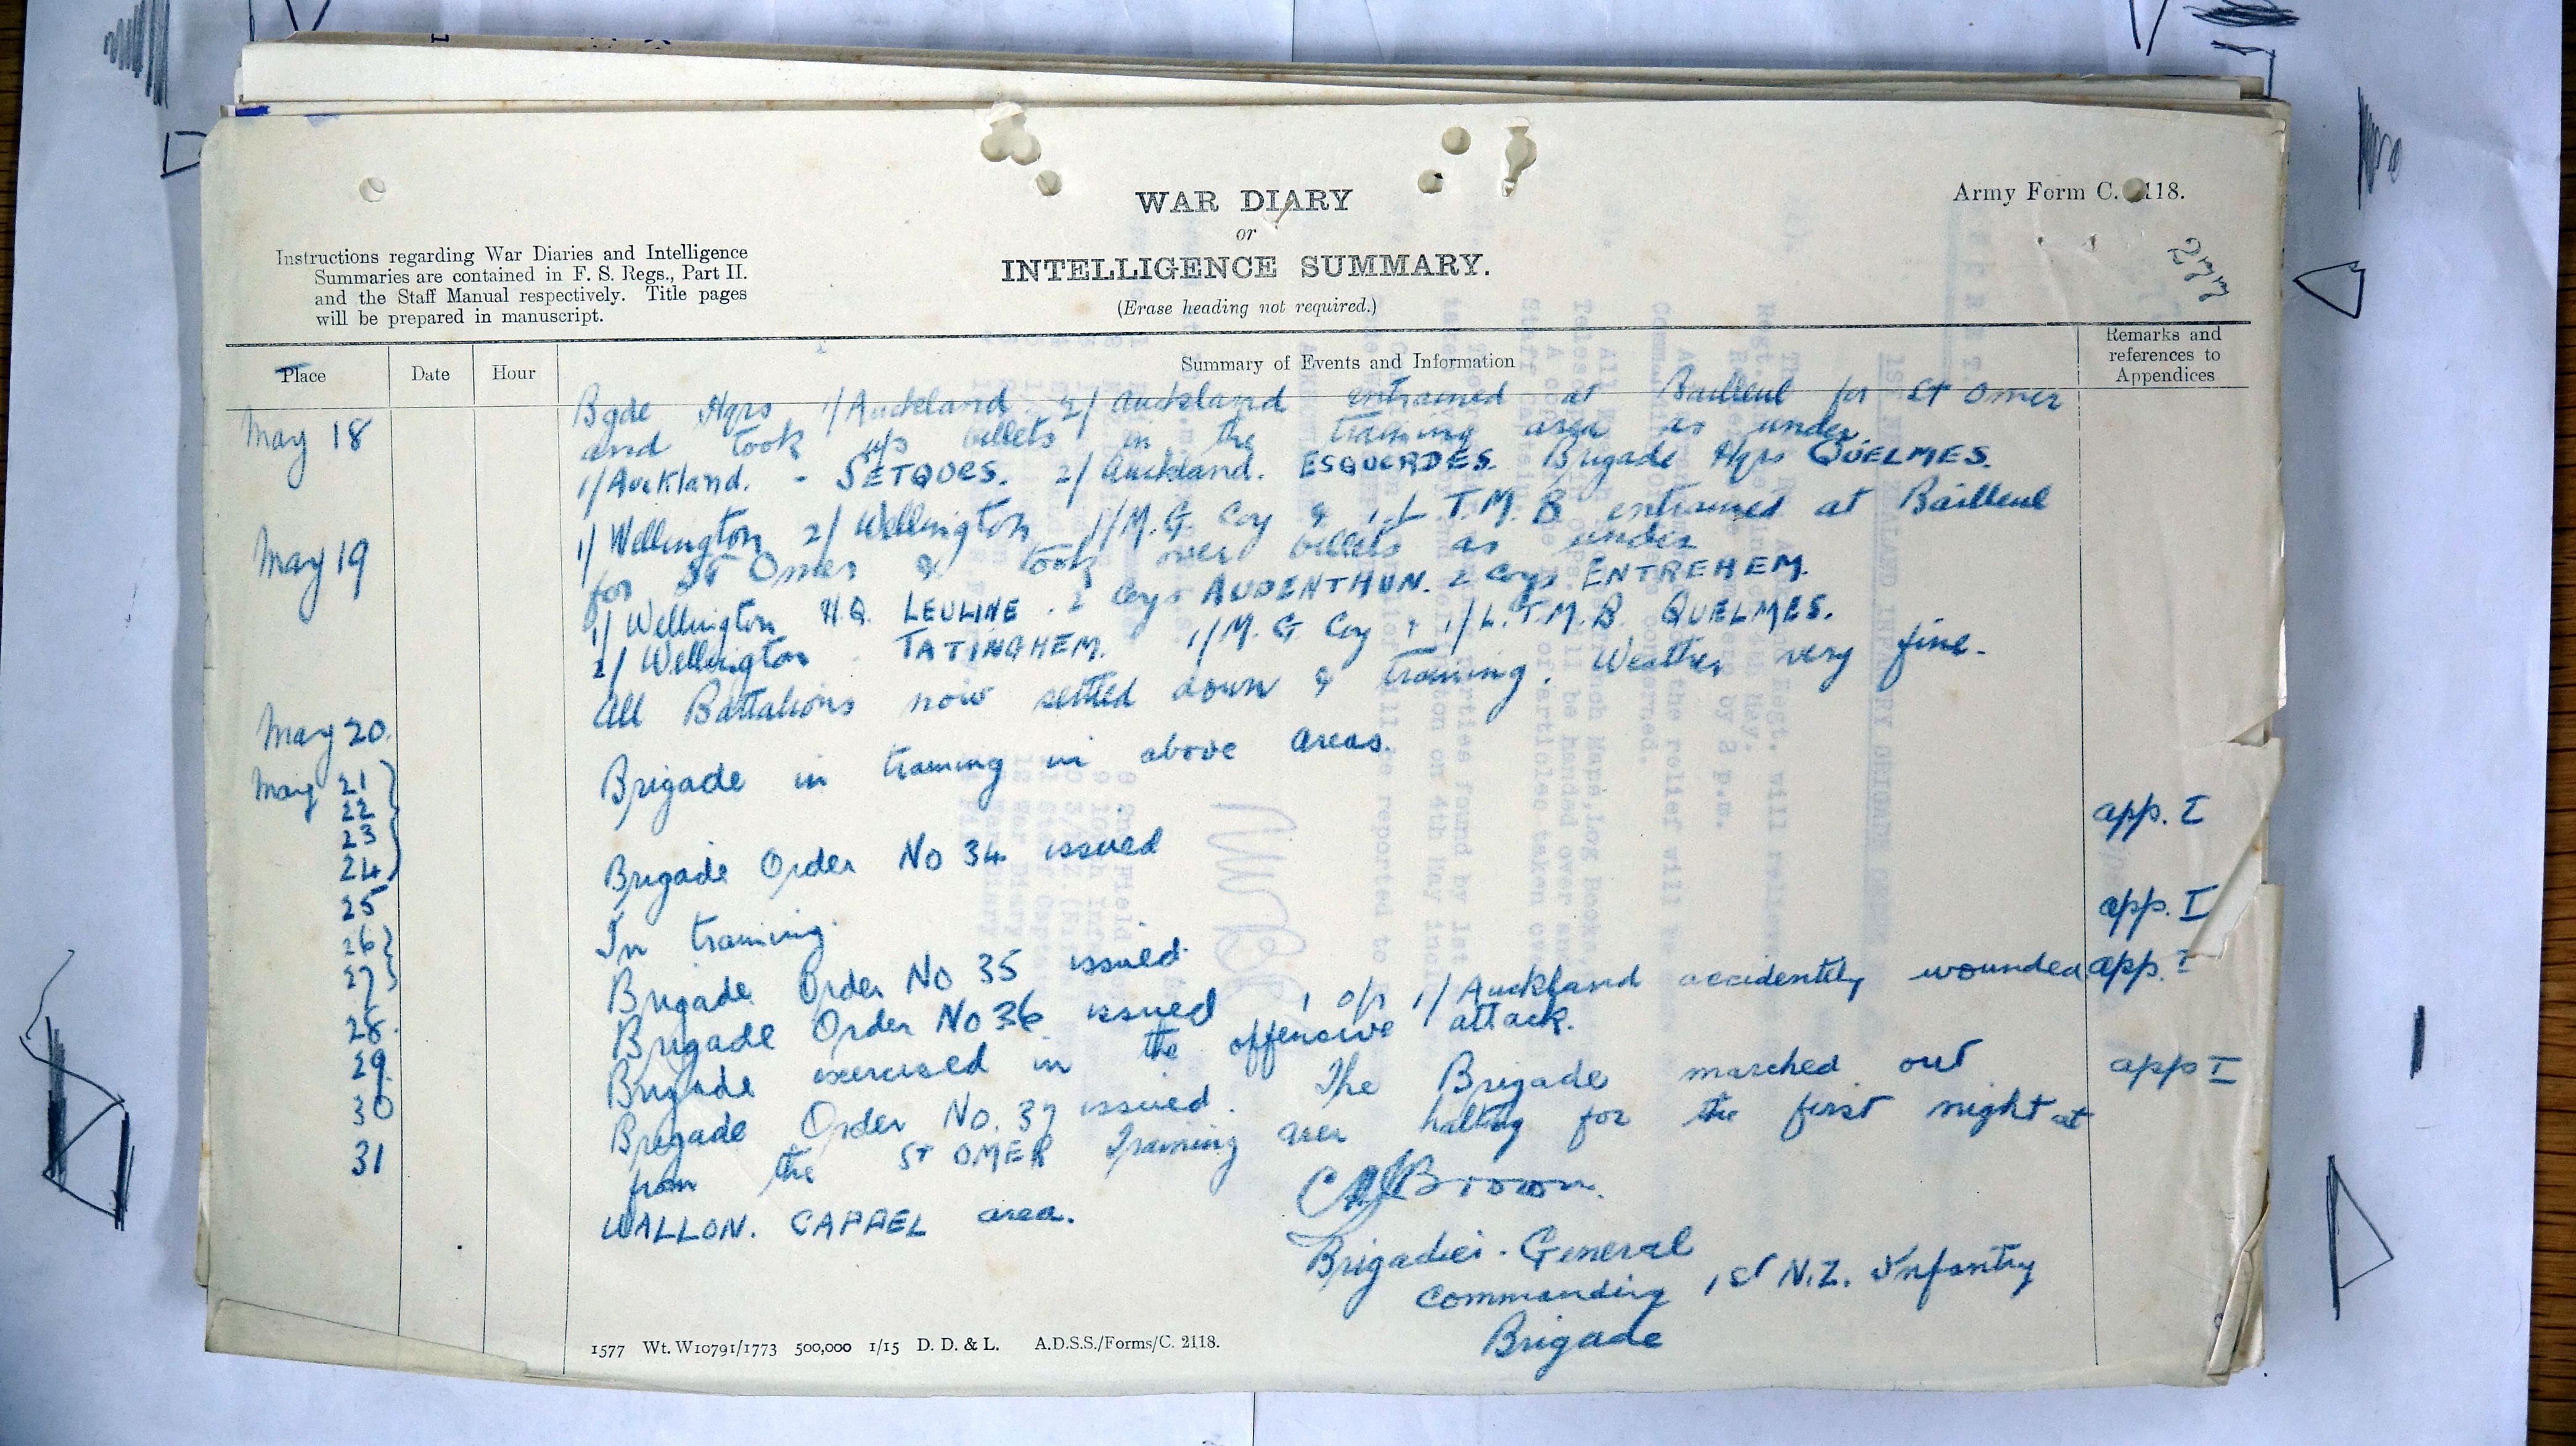 WAR DIARY
or
INTELLIGENCE SUMMARY.
(Erase heading not required.)
Army Form C. 2118.
Instructions regarding War Diaries and Intelligence
Summaries are contained in F. S. Regs., Part II.
and the Staff Manual respectively. Title pages
will be prepared in manuscript.
Place Date Hour Summary of Events and Information Remarks and references to Appendices
May 18 Bgde Hqrs 1/Auckland 2/Auckland entrained at Bailleul for St Omer
and took up billets in the training area as under.
1/Auckland. - SETQUES. 2/Auckland. ESQUERDES. Brigade Hqrs QUELMES.
May 19 1/Wellington 2/Wellington 1/M.G. Coy & 1/L T.M.B entrained at Bailleul
for St Omer & took over billets as under
1/Wellington H.Q. LEULINE. 2 Coys AUDENTHUN. 2 Coys ENTREHEM.
2/Wellington . TATINGHEM. 1/M.G Coy & 1/L.T.M.B. QUELMES.
May 20. All Battalions now settled down & training. Weather very fine.
May 21 Brigade in training in above areas.
22
23
24
25 Brigade Order No 34 issued app. I
26 In training.
27
28. Brigade Order No 35 issued app. I
29 Brigade Order No 36 issued 1 o/r 1/Auckland accidently wounded app. I
30 Brigade exercised in the offensive attack.
31 Brigade Order No. 37 issued. The Brigade marched out app I
from the ST OMER Training area halting for the first night at
WALLON. CAPPEL area.
Brown.
Brigadier-General
Commanding 1st N.Z. Infantry
Brigade
1577 Wt. W10791/1773 500,000 1/15 D. D. & L. A.D.S.S./Forms/C. 2118.